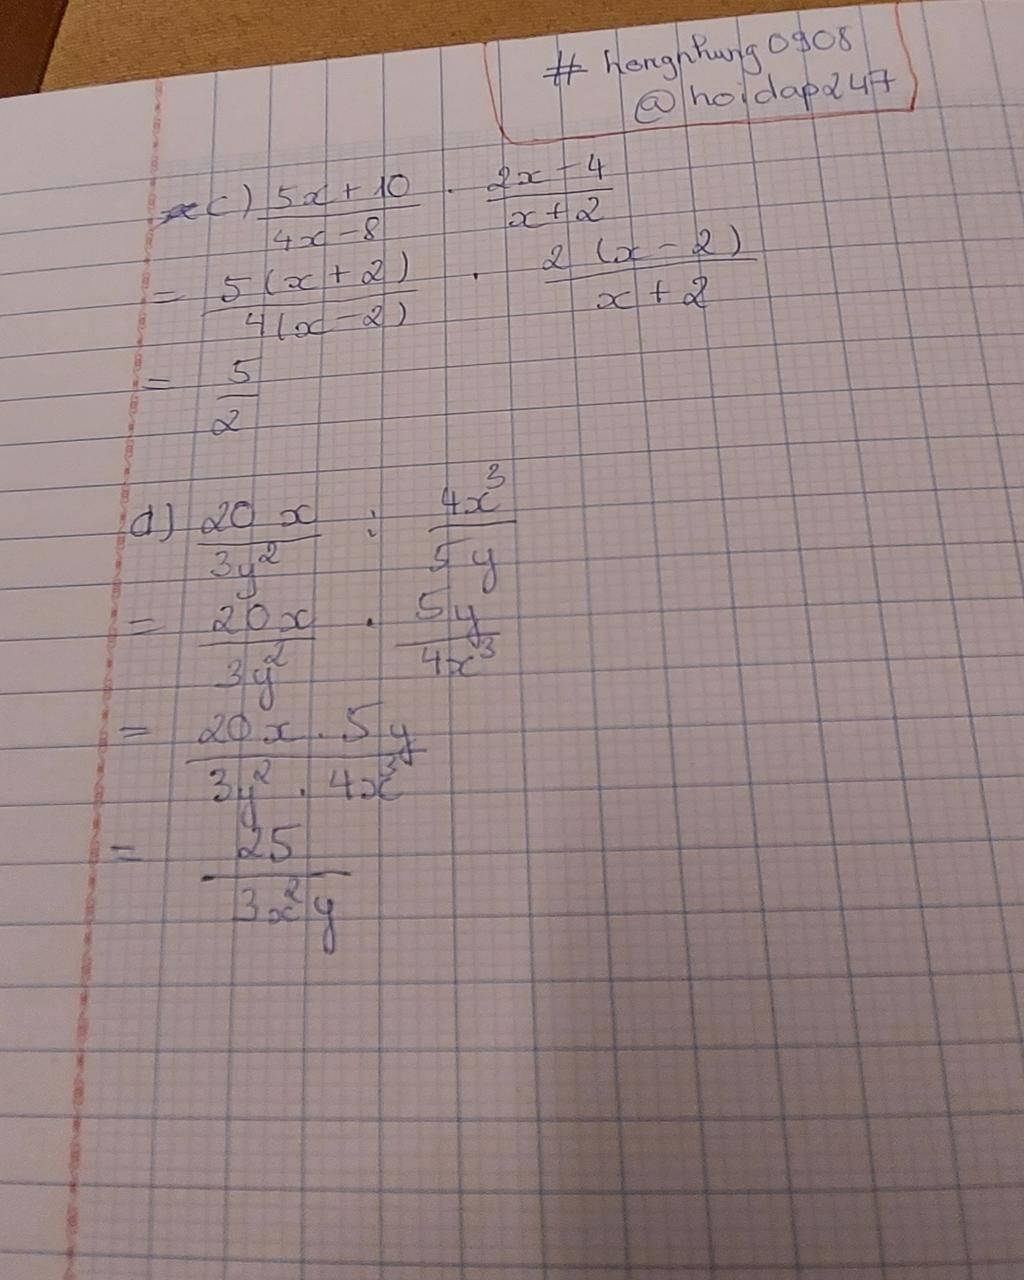 # honghhung0908
@hoidap247
c) \frac{5x+10}{4x-8} . \frac{2x-4}{x+2}
= \frac{5(x+2)}{4(x-2)} . \frac{2(x-2)}{x+2}
= \frac{5}{2}
d) \frac{20x}{3y^2} : \frac{4x^3}{5y}
= \frac{20x}{3y^2} . \frac{5y}{4x^3}
= \frac{20x.5y}{3y^2.4x^3}
= \frac{25}{3x^2y}